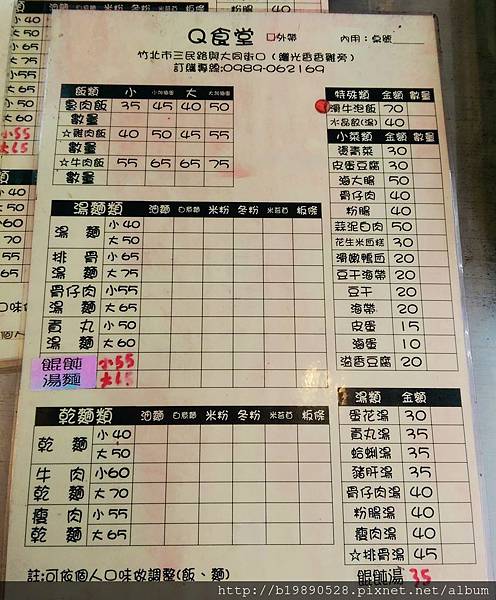 Q食堂 口外帶 內用：桌號
竹北市三民路與大同街口（繼光香香雞旁）
訂餐專線:0989-062169
飯類 小 小加滷蛋 大 大加滷蛋
魯肉飯 35 45 40 50
數量
☆雞肉飯 40 50 45 55
數量
☆牛肉飯 55 65 65 75
數量
湯麵類 油麵 白意麵 米粉 冬粉 米苔目 板條
湯麵 小40
大50
排骨湯麵 小65
大75
骨仔肉湯麵 小55
大65
貢丸湯麵 小50
大60
餛飩湯麵 小55
大65
乾麵類 油麵 白意麵 米粉 冬粉 米苔目 板條
乾麵 小40
大50
牛肉乾麵 小60
大70
瘦肉乾麵 小55
大65
註:可依個人口味做調整(飯、麵)
特殊類 金額 數量
滑牛泡飯 70
水晶餃(湯) 40
小菜類 金額 數量
燙青菜 30
皮蛋豆腐 30
滷大腸 50
骨仔肉 40
粉腸 40
蒜泥白肉 50
花生米血糕 30
滑嫩鴨血 20
豆干海帶 20
豆干 20
海帶 20
皮蛋 15
滷蛋 10
滷香豆腐 20
湯類 金額
蛋花湯 30
貢丸湯 35
蛤蜊湯 35
豬肝湯 35
骨仔肉湯 40
粉腸湯 40
瘦肉湯 40
☆排骨湯 45
餛飩湯 35
http://b19890528.pixnet.net/album